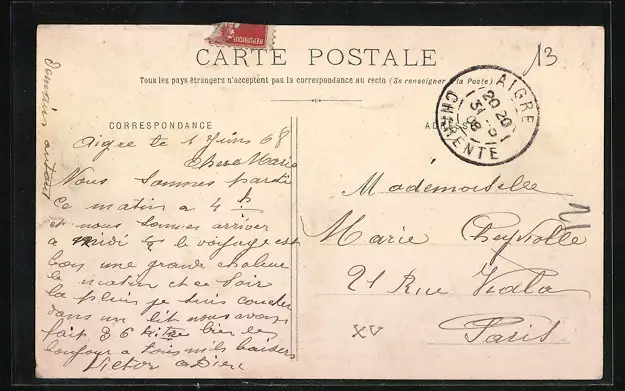 REPUBLIQUE
CARTE POSTALE
13
Tous les pays étrangers n'acceptent pas la correspondance au recto (Se renseigner à la Poste)
CORRESPONDANCE
AIGRE
20 20
31 -5
08
CHARENTE
Aigre le 1 Juins 08
Chere Marie
Nous sommes parti
ce matin a 4 h
et nous sommes arriver
a midi le voyage est
bon une grande chaleur
le matin et ce soir
la pluis je suis coucher
dans un lit nous avons
fait 36 bien le
bonjour a tous mils baisers
Victor
Mademoiselle
Marie Cheyrolle
21 Rue Viala
Paris
XV
21